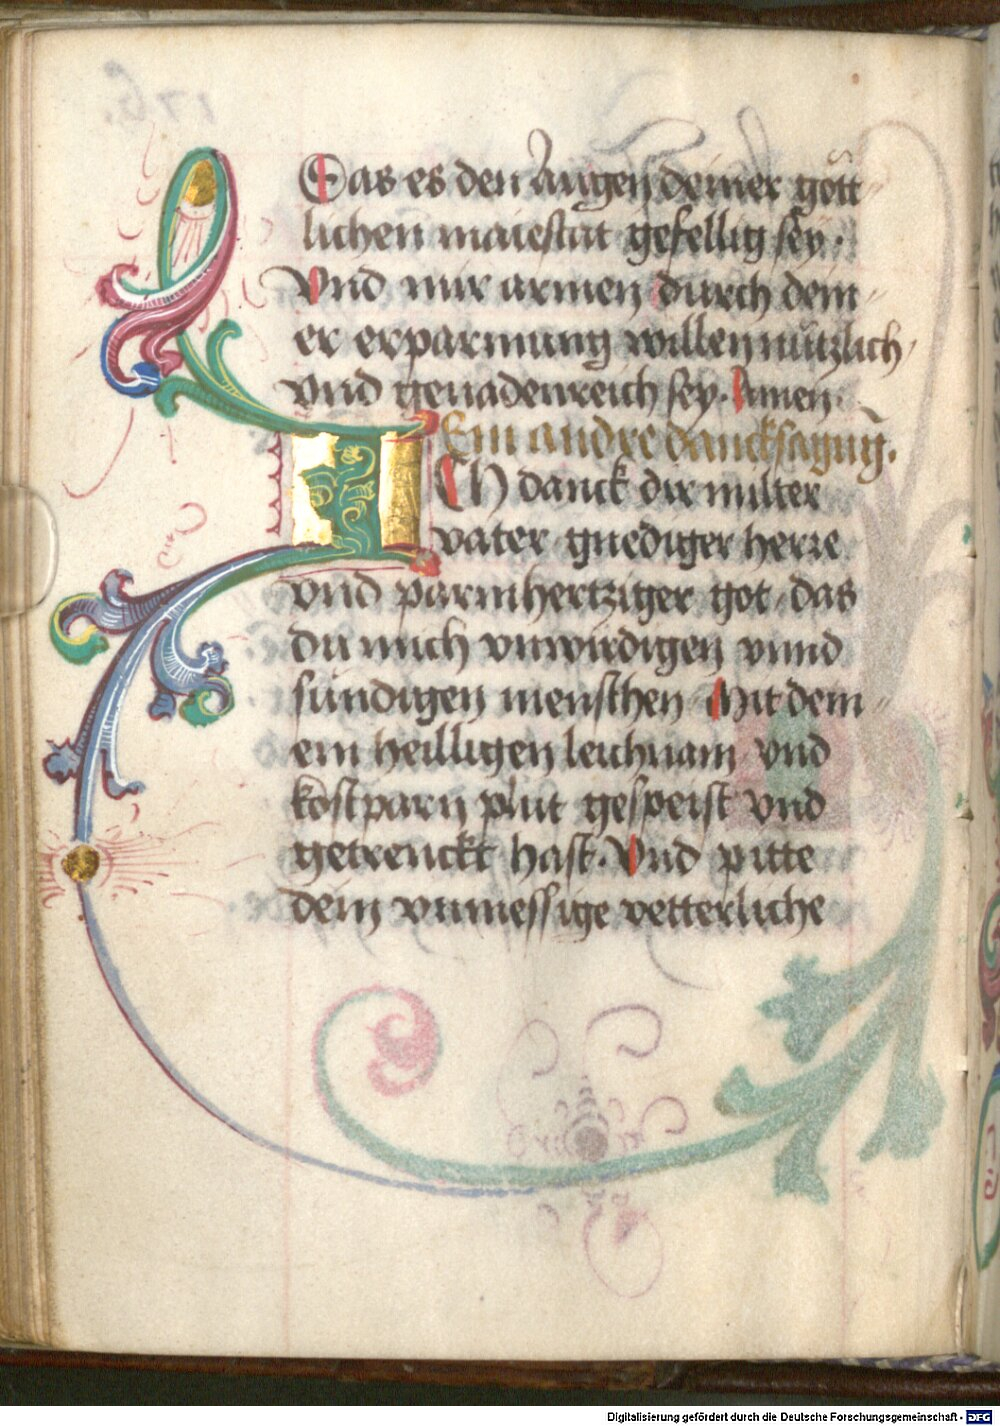 Das es den Augen deiner gött
lichen maiestat gefellig sey.
Vnd mir armen durch dein
er erparmung willen nützlich
vnd genadenreich sey. Amen.
Ein andre dancksagūg.
ICh danck dir milter
vater gnediger herre
vnd parmhertziger got das
du mich vnwirdigen vnnd
sündigen menschen Mit dem
ein heilligen leichnam vnd
kostparn plut gespeist vnd
getrenckt hast. Vnd pitte
dein vnmessige vetterliche
Digitalisierung gefördert durch die Deutsche Forschungsgemeinschaft - DFG